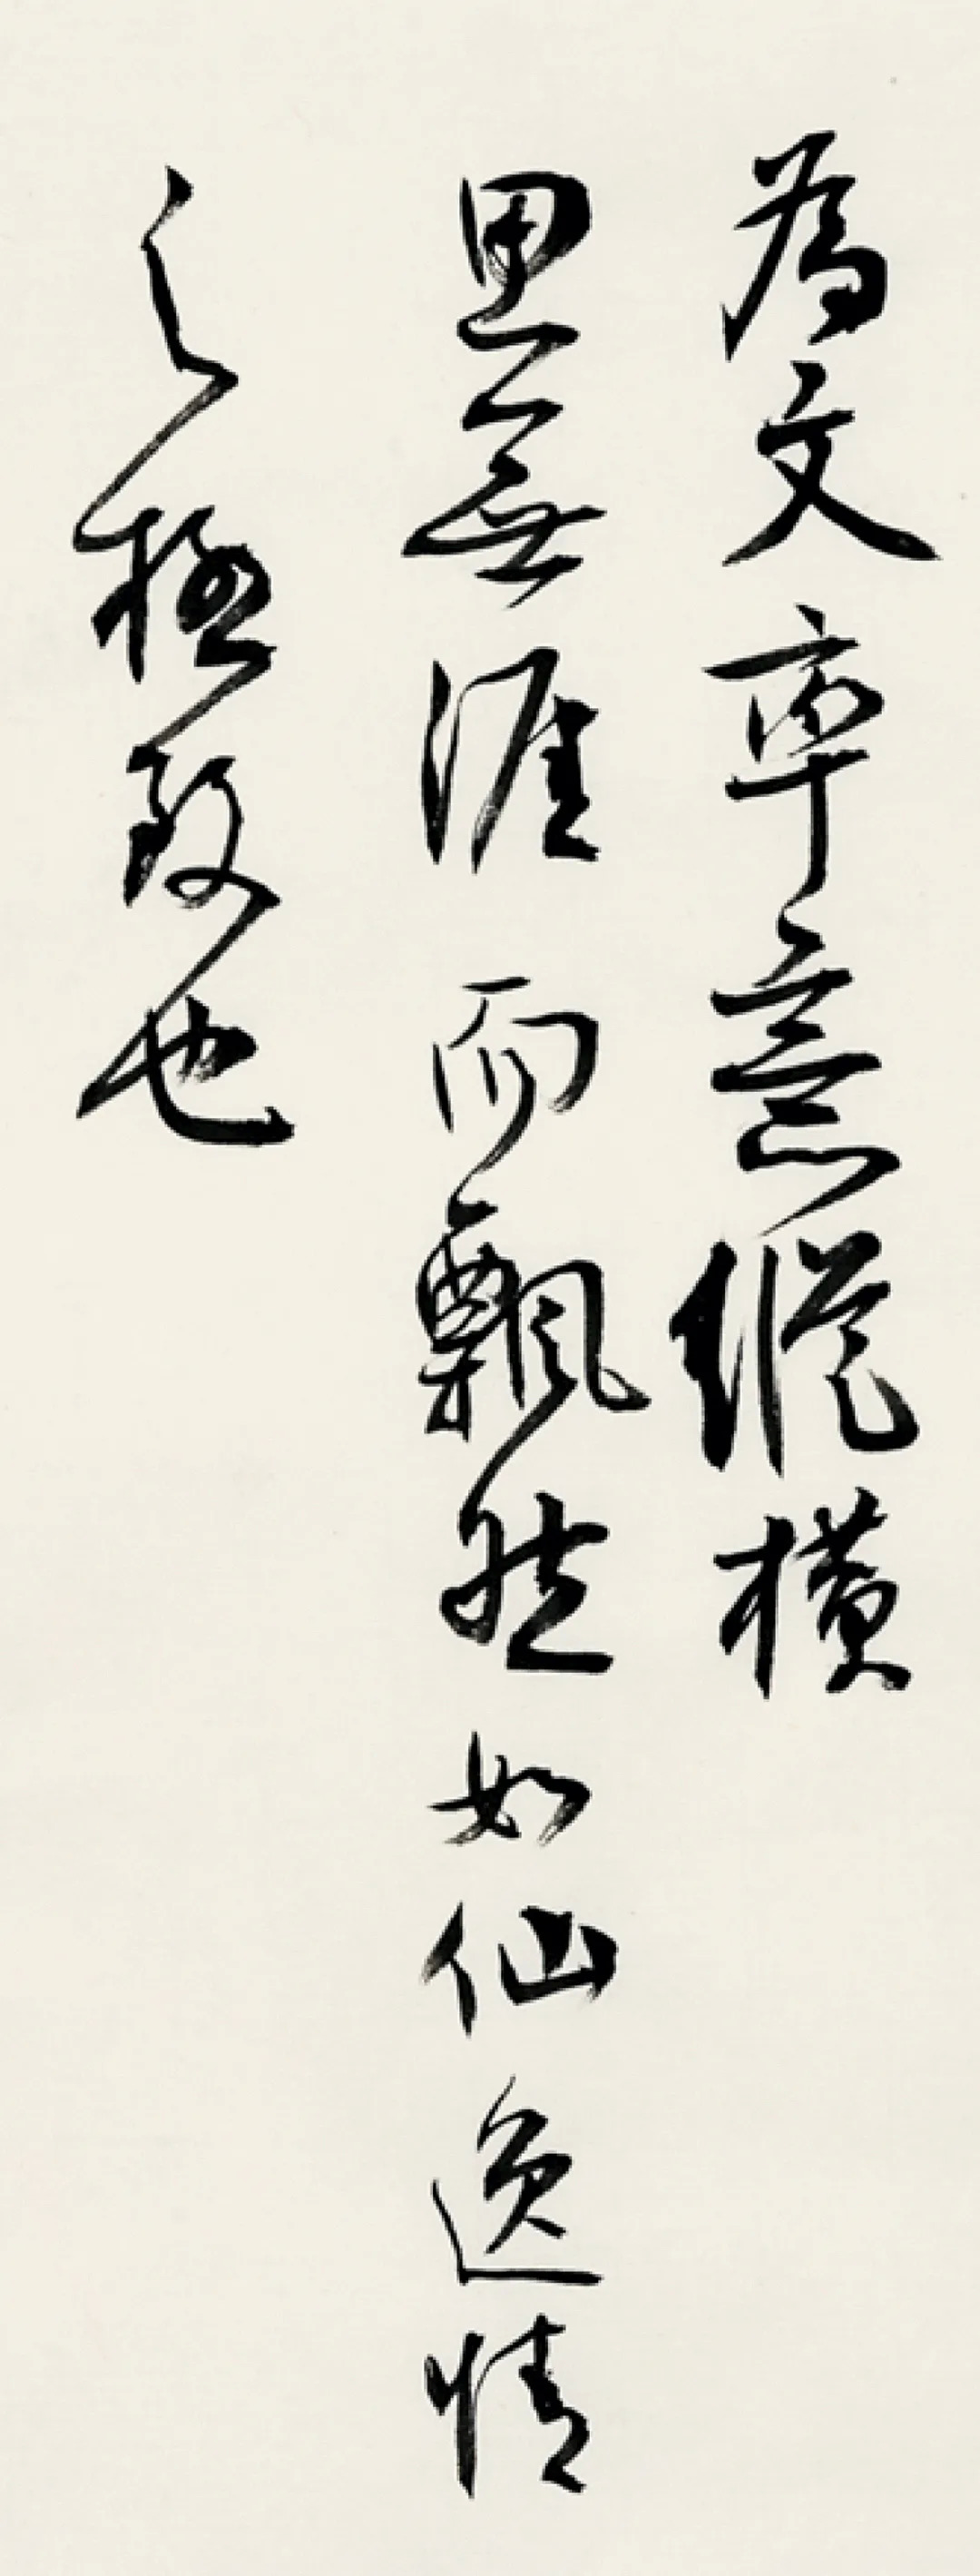 為文率意縱橫
思無涯而飄然如仙逸情
之極致也